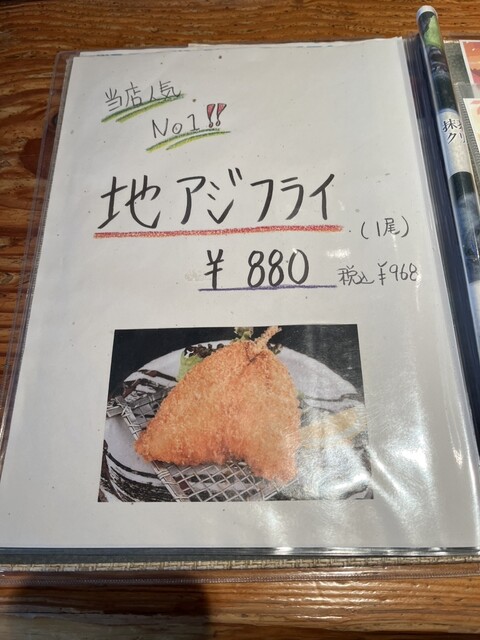 当店人気
No1!!
地アジフライ
(1尾)
¥880
税込¥968